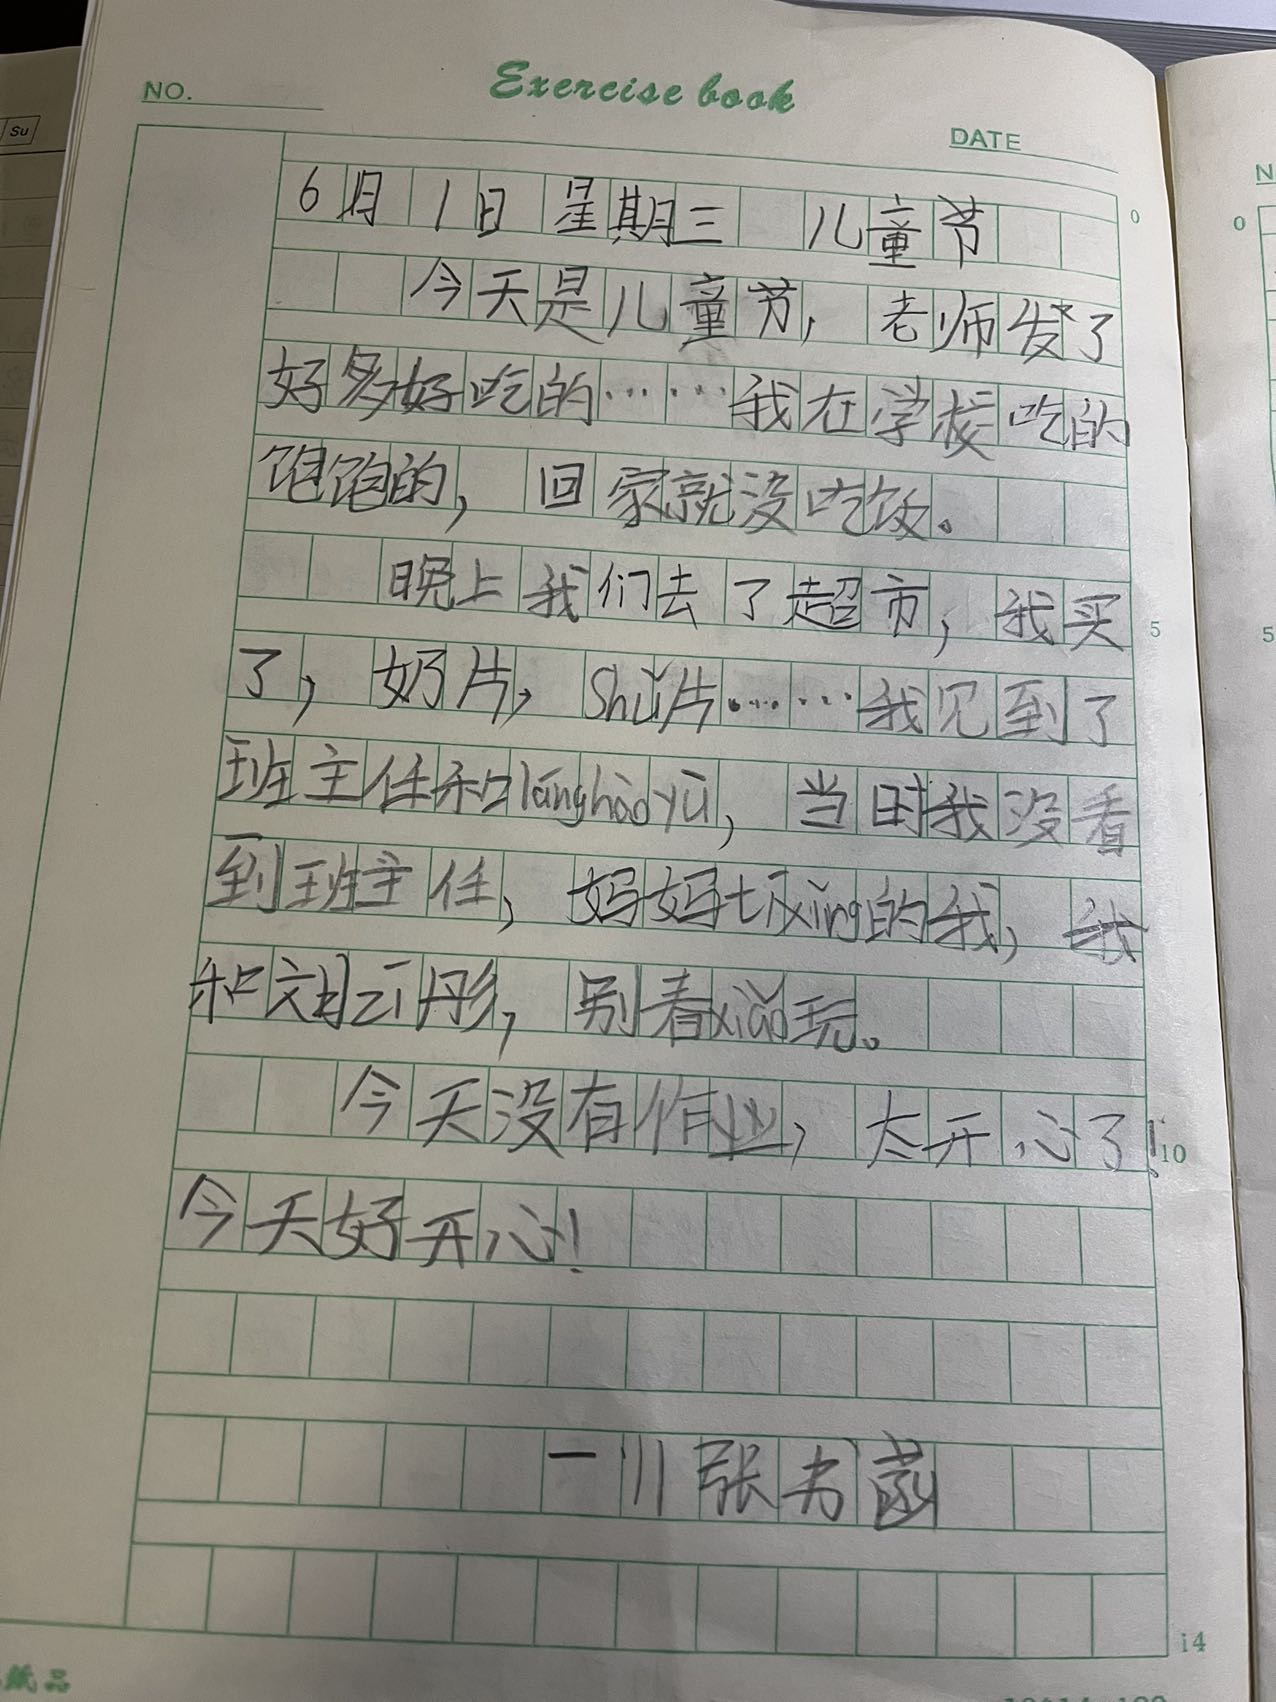 Su
NO.
Exercise book
DATE
6月1日 星期三 儿童节
今天是儿童节，老师发了
好多好吃的……我在学校吃的
饱饱的，回家就没吃饭。
晚上我们去了超市，我买
了，奶片，shǔ片……我见到了
班主任和lánghàoyǔ，当时我没看
到班主任，妈妈tíxǐng的我，我
和刘云彤，别着xiǎo玩。
今天没有作业，太开心了！
今天好开心！
一 11 张书菡
0
5
10
14
0
5
纸品